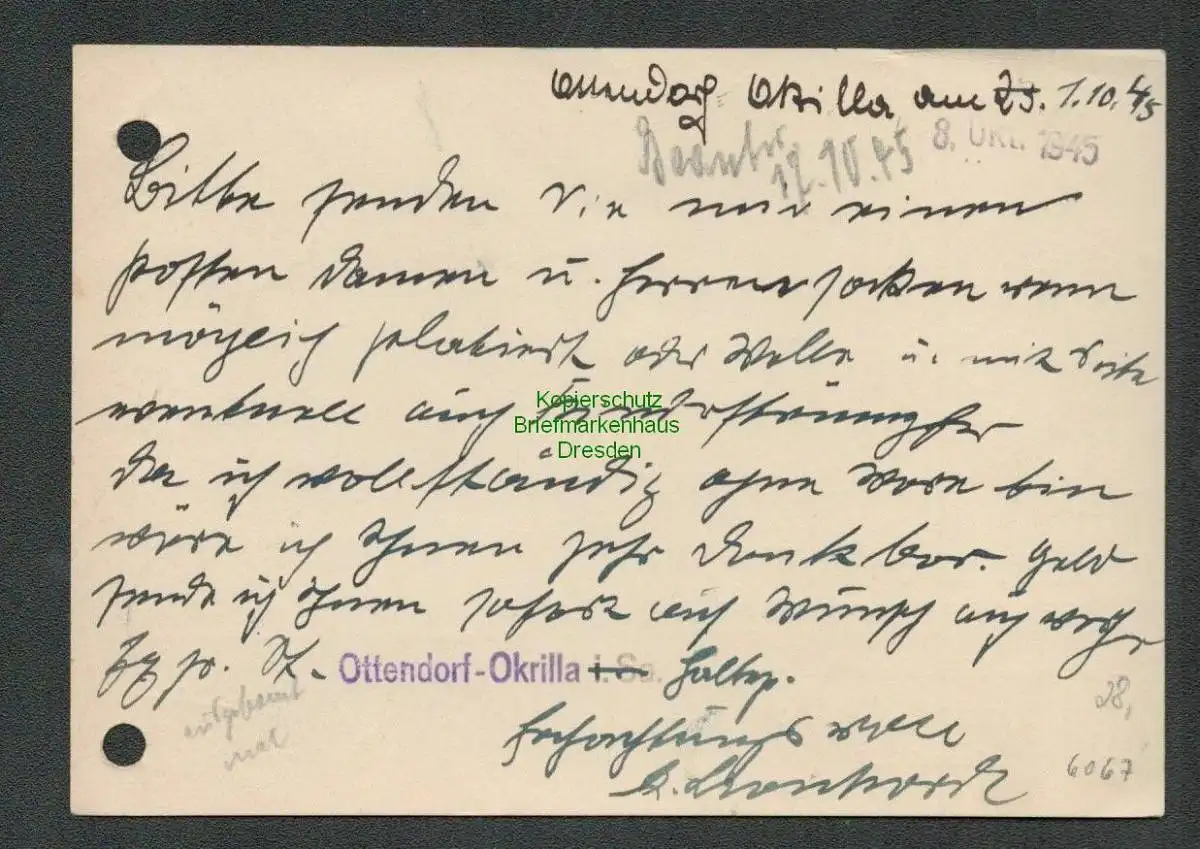 Ottendorf Okrilla, am 1.10.45
Beantw. 12.10.45 8. Okt. 1945
Bitte senden Sie mir einen
Posten Damen u. Herrensocken wenn
möglich plattiert oder Wolle u. mit Seite
eventuell auch Kinderstrümpfe
Kopierschutz
Briefmarkenhaus
Dresden
da ich vollständig ohne Ware bin
wäre ich Ihnen sehr dankbar. Geld
sende ich Ihnen sofort auf Wunsch auch
Ottendorf-Okrilla i. Sa.
28,
Hochachtungsvoll
Leonhardt
6067